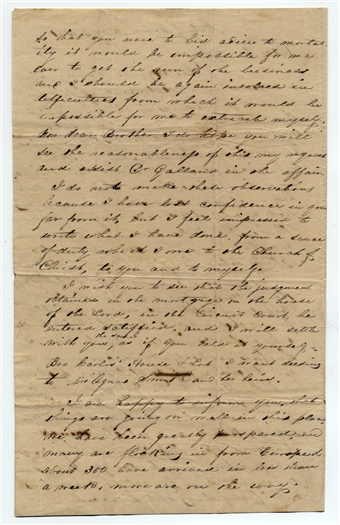 so that you were to bid adieu to mortal-
ity it would be impossible for me
ever to get the run of the business
and I should be again involved in
difficulties from which it would be
impossible for me to extricate myself;
dear Brother I do hope you will
see the reasonableness of this my request
and assist Dr Galland in the affair
I do not make these observations
because I have lost confidence in you
far from it, but I feel impressed to
write what I have done, from a sense
of duty which I owe to the Church of
Christ, to you and to myself
I wish you to see that the judgment
obtained on the mortgage on the house
of the Lord, in the Circuit Court, be
entered satisfied, and I will settle
with you, the same as if you held it yourself.
Bro House & Lot I want deeding
to and her heirs.
I am happy to inform you, that
things are going on well in this place
we have been greatly prospered, and
many are flocking in from Europe
about 300 have arrived in less than
a week, more are on the way,